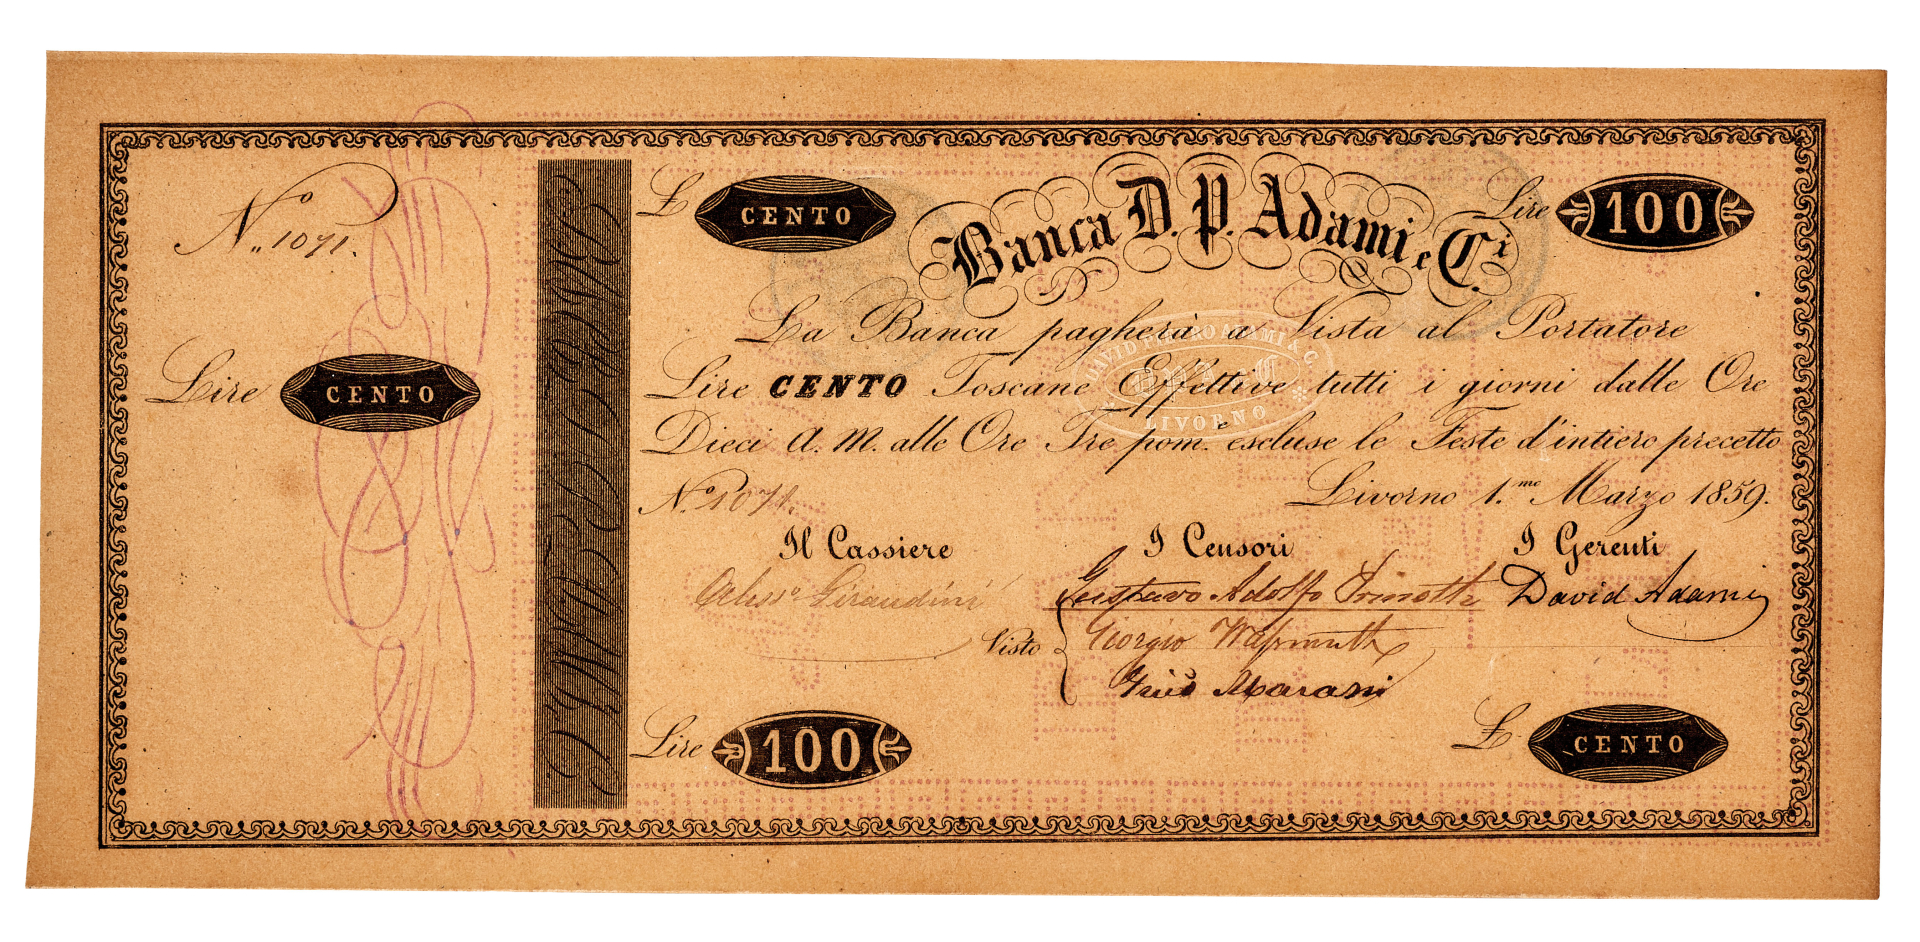 N.º 1071.
Lire CENTO
£ CENTO
Banca D. P. Adami e C.i
Lire 100
La Banca pagherà a Vista al Portatore
Lire CENTO Toscane Effettive tutti i giorni dalle Ore
Dieci A. M. alle Ore Tre pom. escluse le Feste d'intiero precetto
DAVID ADAMI & C.
LIVORNO
N.º 1071.
Livorno 1.mo Marzo 1859.
Il Cassiere
I Censori
I Gerenti
Giraudini
Gustavo Adolfo
David Adami
Visto
Giorgio
Marassi
Lire 100
£ CENTO